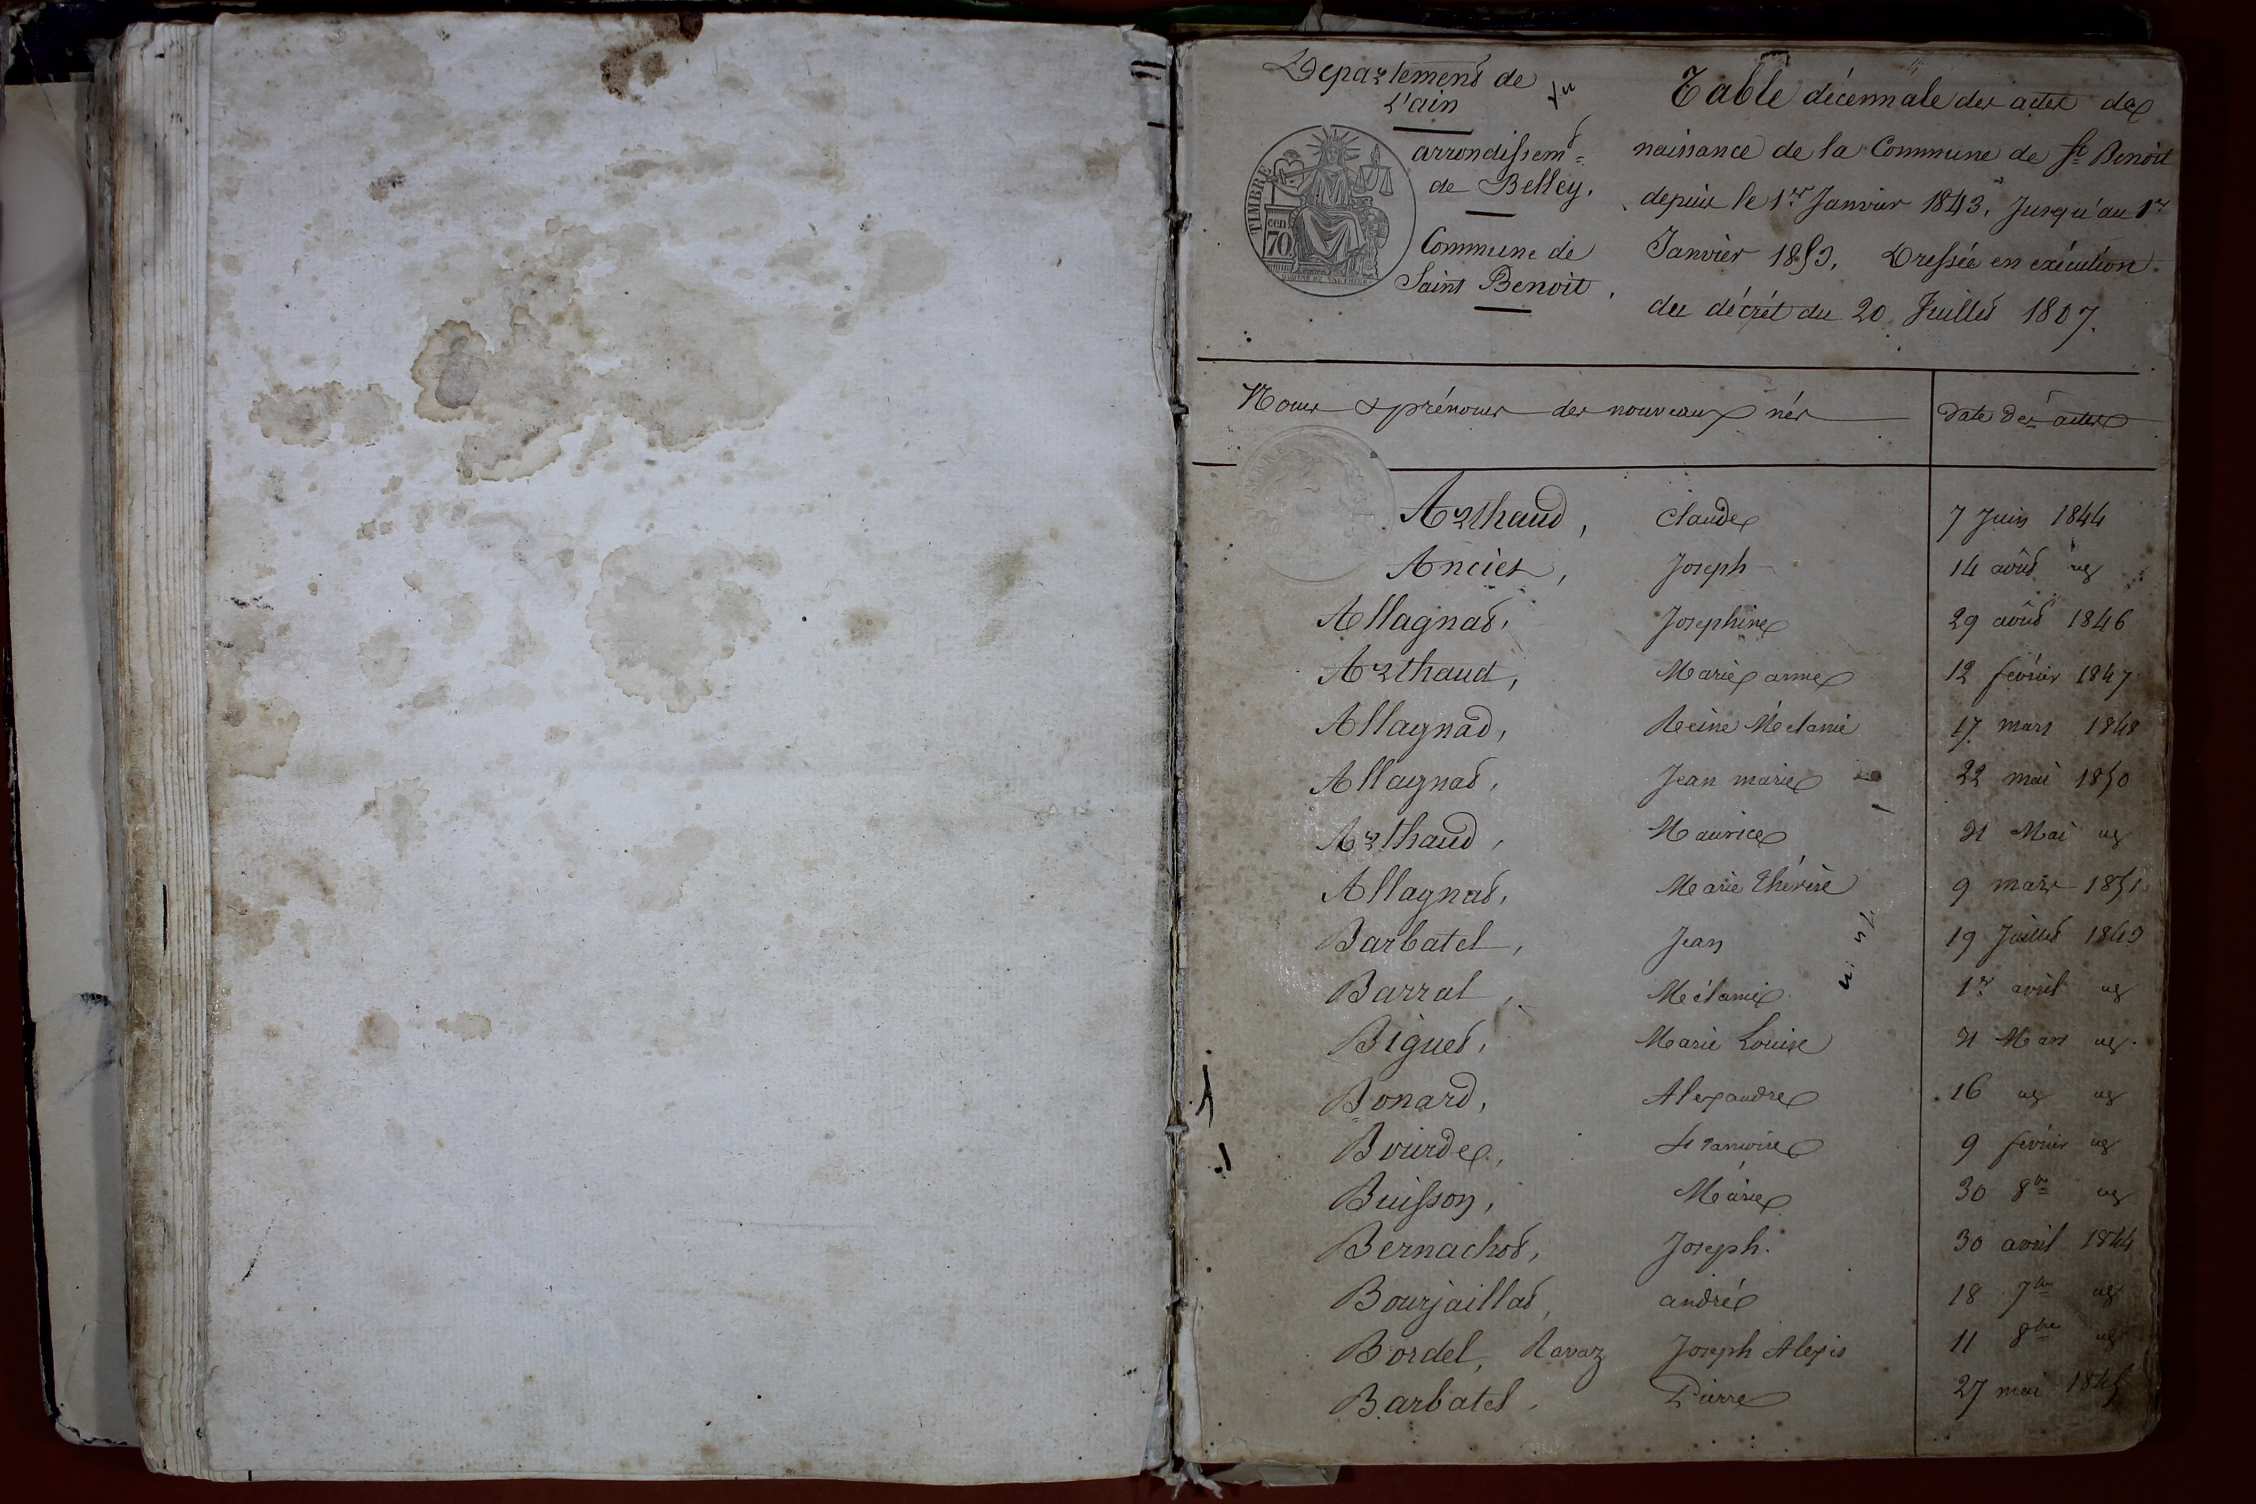 Departement de
L'ain
arrondissemt
de Belley.
Commune de
Saint Benoit.
TIMBRE
70
Table décennale des actes de
naissance de la Commune de St Benoit
depuis le 1er Janvier 1843, Jusqu'au 1er
Janvier 1853, Dressée en exécution
du décrét du 20 Juillet 1807.
Noms & prénoms des nouveaux nés Date des actes
Arthaud, Claude 7 Juin 1844
Joseph 14 août
Allagnat, Josephine 29 août 1846
Arthaud, Marie anne 12 février 1847
Allagnat, Reine Mélanie 17 mars 1848
Allagnat, Jean marie 22 mai 1850
Arthaud, Maurice 31 Mai
Allagnat, Marie Thérèse 9 mars 1851
Barbatel, Jean 19 Juillet 1843
Barral, Mélanie 1er avril
Biguet, Marie Louise 31 Mars
Bonard, Alexandre 16
Bourde, françoise 9 février
Buisson, Marie 30 8bre
Bernachot, Joseph. 30 avril 1844
Bourjaillat, andré 18 7bre
Bordel, Ravaz Joseph Alexis 11 8bre
Barbatel, Pierre 27 mai 1845